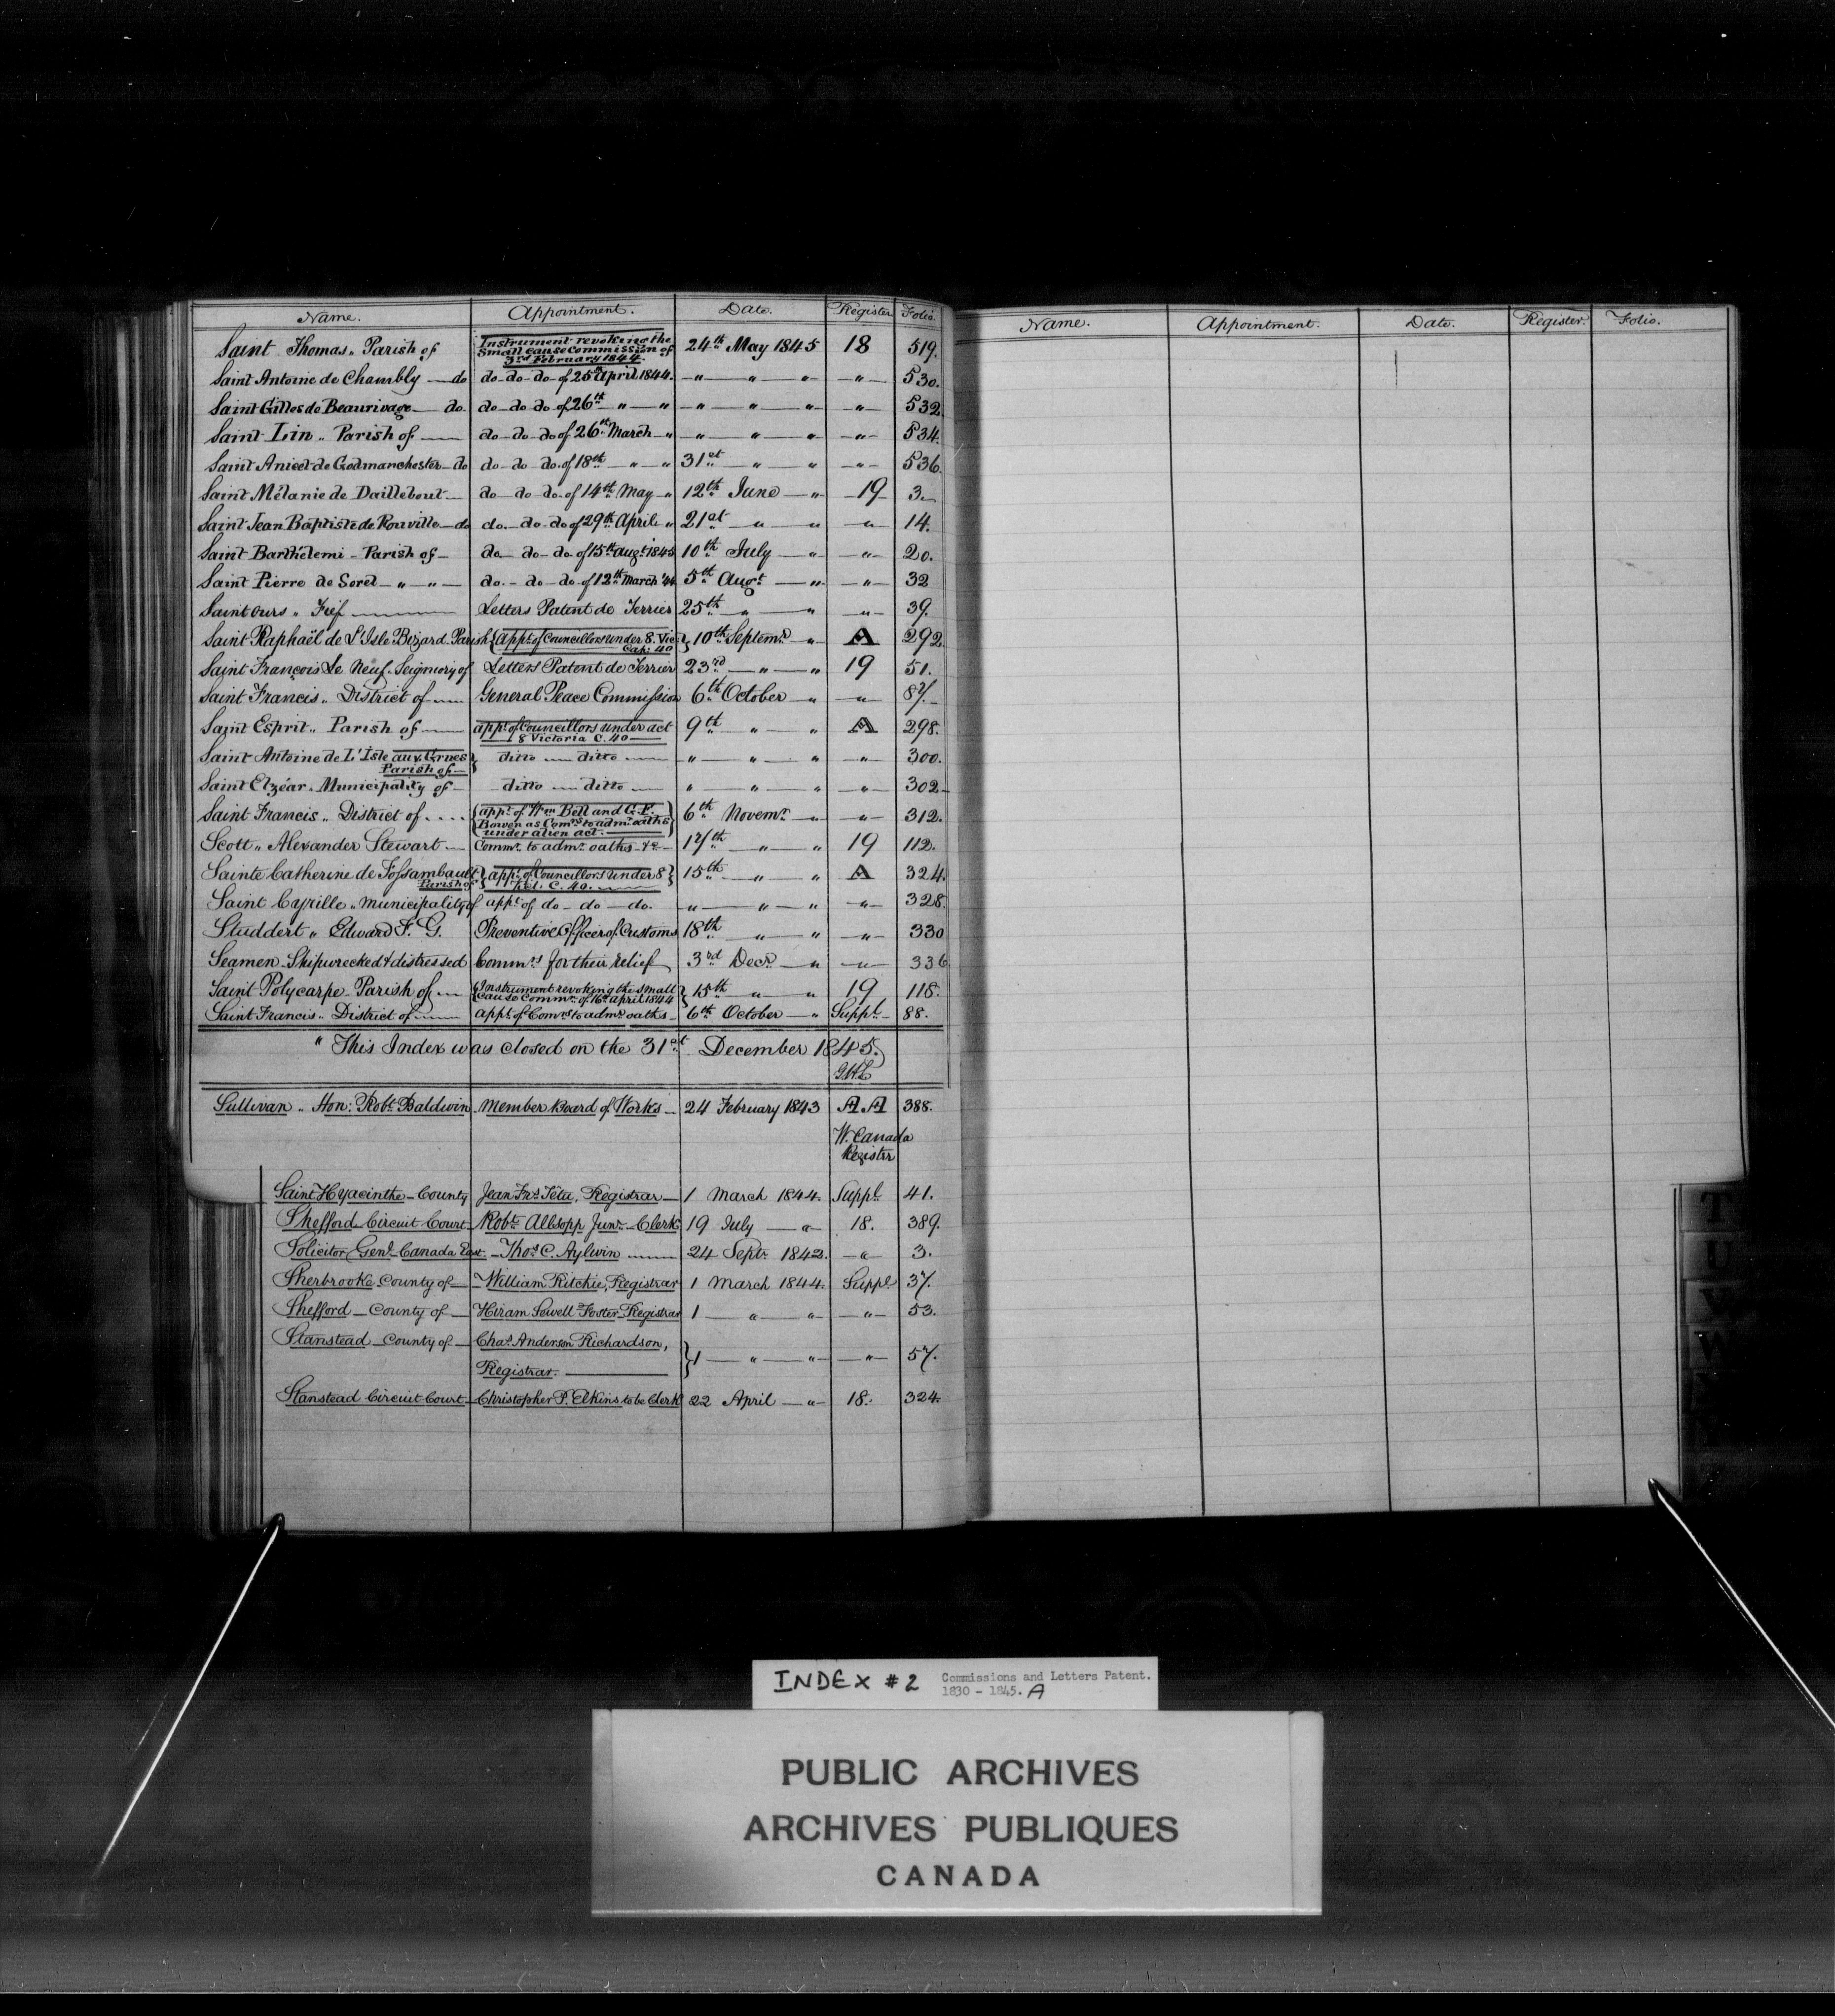 Name. Appointment. Date. Register Folio.
Saint Thomas „ Parish of Instrument revoking the Small cause Commission of 3rd February 1844. 24th May 1845 18 519.
Saint Antoine de Chambly — do do - do - do - of 25th April 1844. — " — " — " — " — 530.
Saint Gilles de Beaurivage — do. do - do do of 26th " — " — " — " — " — " — 532
Saint Lin „ Parish of — do - do - do of 26th March - " — " — " — " — " — 534.
Saint Anicet de Godmanchester - do do - do - do. of 18th " — " 31st — " — " — " — 536.
Saint Mélanie de Daillebout — do - do - do. of 14th May - " 12th June — " — 19 3 —
Saint Jean Baptiste de Rouville - do do. - do - do of 29th April - " 21st — " — " — " — 14.
Saint Barthélemi - Parish of - do - do - do. of 15th Augt. 1845 10th July — " — " — 20.
Saint Pierre de Sorel - " - " — do. - do - do of 12th March '44 5th Augt. — " — " — 32
Saint Ours „ Fief — Letters Patent de Terrier 25th — " — " — " — 39.
Saint Raphaël de L'Isle Bizard Parish { Appt. of Councillors under 8. Vic. Cap: 40 } 10th Septemr. — " A 292
Saint François Le Neuf - Seigniory of Letters Patent de Terrier 23rd — " — " 19 51.
Saint Francis „ District of — General Peace Commission 6th October — " — " — 87. -
Saint Esprit „ Parish of — appt. of Councillors under act 8 Victoria C. 40 — 9th — " — " A 298.
Saint Antoine de L'Isle aux Grues Parish of — } ditto — ditto — " — " — " — " — 300.
Saint Elzéar „ Municipality of - ditto — ditto — " — " — " — " — 302 -
Saint Francis „ District of . . . . { appt. of Wm. Bell and G. F. Bowen as Comrs. to admr. oaths under alien act. — } 6th Novemr. — " — " — 312.
Scott „ Alexander Stewart — Commr. to admr. oaths - &c - 17th — " — " 19 112.
Sainte Catherine de Fossambault Parish of } appt. of Councillors under 8 Vict. C. 40. — } 15th — " — " A 324.
Saint Cyrille „ municipality of appt. of do - do - do. — " — " — " — " — 328.
Studdert „ Edward F. G. Preventive Officer of Customs 18th — " — " — " — 330
Seamen - Shipwrecked & distressed Commrs. for their relief 3rd Decr. — " — " — 336
Saint Polycarpe - Parish of — { Instrument revoking the small cause Commn. of 16th april 1844 } 15th — " — " 19 118.
Saint Francis „ District of — appt. of Comrs. to admr. oaths — 6th October — " Suppl. — 88.
" This Index was closed on the 31st December 1845.
Sullivan „ Hon: Robt. Baldwin Member Board of Works — 24 February 1843 AA 388.
W. Canada
Register
Saint Hyacinthe - County Jean Frs. Têtu, Registrar — 1 March 1844. Suppl. 41.
Shefford Circuit Court - Robt. Allsopp Junr. - Clerk 19 July — " 18. 389.
Solicitor Genl. Canada East. - Thos. C. Aylwin — 24 Septr. 1842. — " — 3.
Sherbrooke County of — William Ritchie, Registrar 1 March 1844. Suppl. 37.
Shefford - County of — Hiram Sewell Foster - Registrar 1 — " — " — " — 53.
Stanstead - County of — Chas. Anderson Richardson,
Registrar. — } 1 — " — " — " — 57.
Stanstead Circuit Court - Christopher P. Elkins to be Clerk 22 April — " 18. 324.
Name. Appointment. Date. Register. Folio.
T
U
V
W
INDEX # 2 Commissions and Letters Patent.
1830 - 1845. A
PUBLIC ARCHIVES
ARCHIVES PUBLIQUES
CANADA